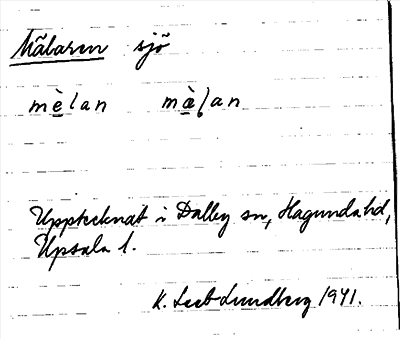 Mälaren sjö
mèlan màlan
Upptecknat i Dalby sn, Hagunda hd,
Upsala l.
K. Leib-Lundberg 1941.